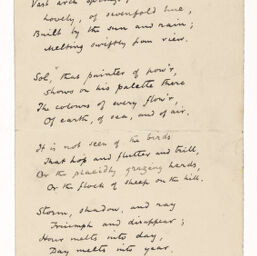 Vast arch
Lovely, of sevenfold hue,
Built by the sun and rain;
Melting swiftly from view.
Sol, that painter of pow'r,
Shows on his palette there
The colours of every flow'r,
Of earth, of sea, and of air.
It is not seen of the birds
That hop and flutter and trill,
Or the placidly grazing herds,
Or the flock of sheep on the hill.
Storm, shadow, and ray
Triumph and disappear;
Hour melts into day,
Day melts into year.